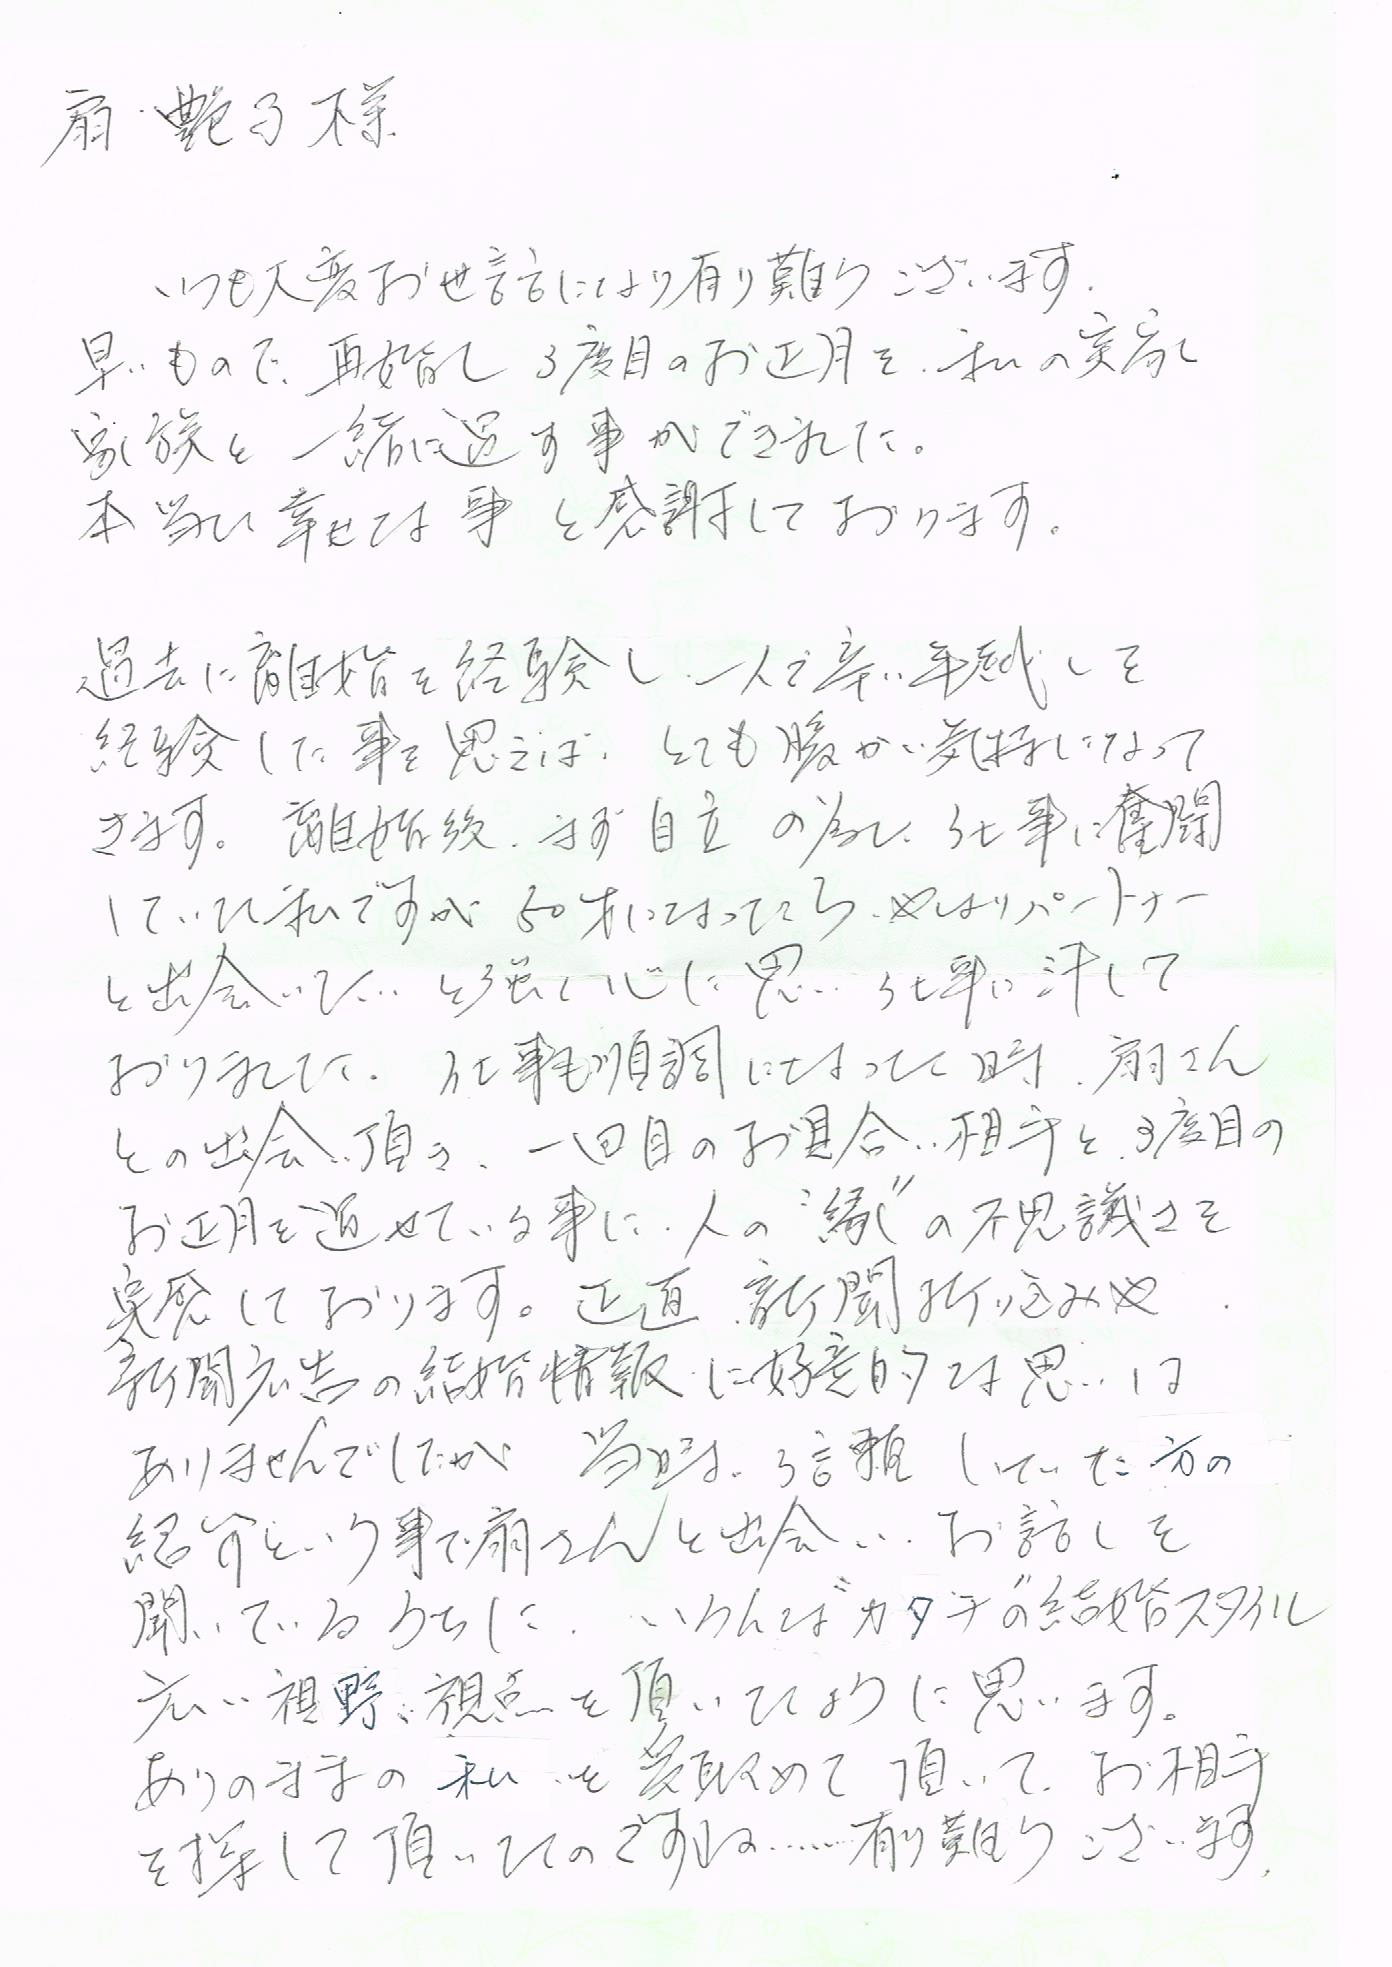 扇 艶子様
いつも大変お世話になり有り難うございます.
早いもので、再婚し 3度目のお正月を、私の実家
家族と一緒に過す事ができました。
本当に幸せな事と感謝しております。
過去に離婚を経験し、一人で辛い年越しを
経験した事を思えば、とても暖かい気持になって
きます。離婚後、まず自立の為に、仕事に奮闘
していた私ですが 50才になったころ、やはりパートナー
と出会いたい と強く心に思い 仕事に汗して
おりました. 仕事も順調になった時、扇さん
との出会い頂き、一回目のお見合い相手と、3度目の
お正月を過せている事に、人の“縁”の不思議さを
実感しております。正直 新聞折り込みや
新聞広告の結婚情報に好意的な思いは
ありませんでしたが 当時、信頼していた方の
紹介という事で扇さんと出会い、お話しを
聞いているうちに、いろんな“カタチ”の結婚スタイル
広い視野、視点を頂いたように思います。
ありのままの私を受取めて頂いて、お相手
を探して頂いたのですね……有り難うございます.